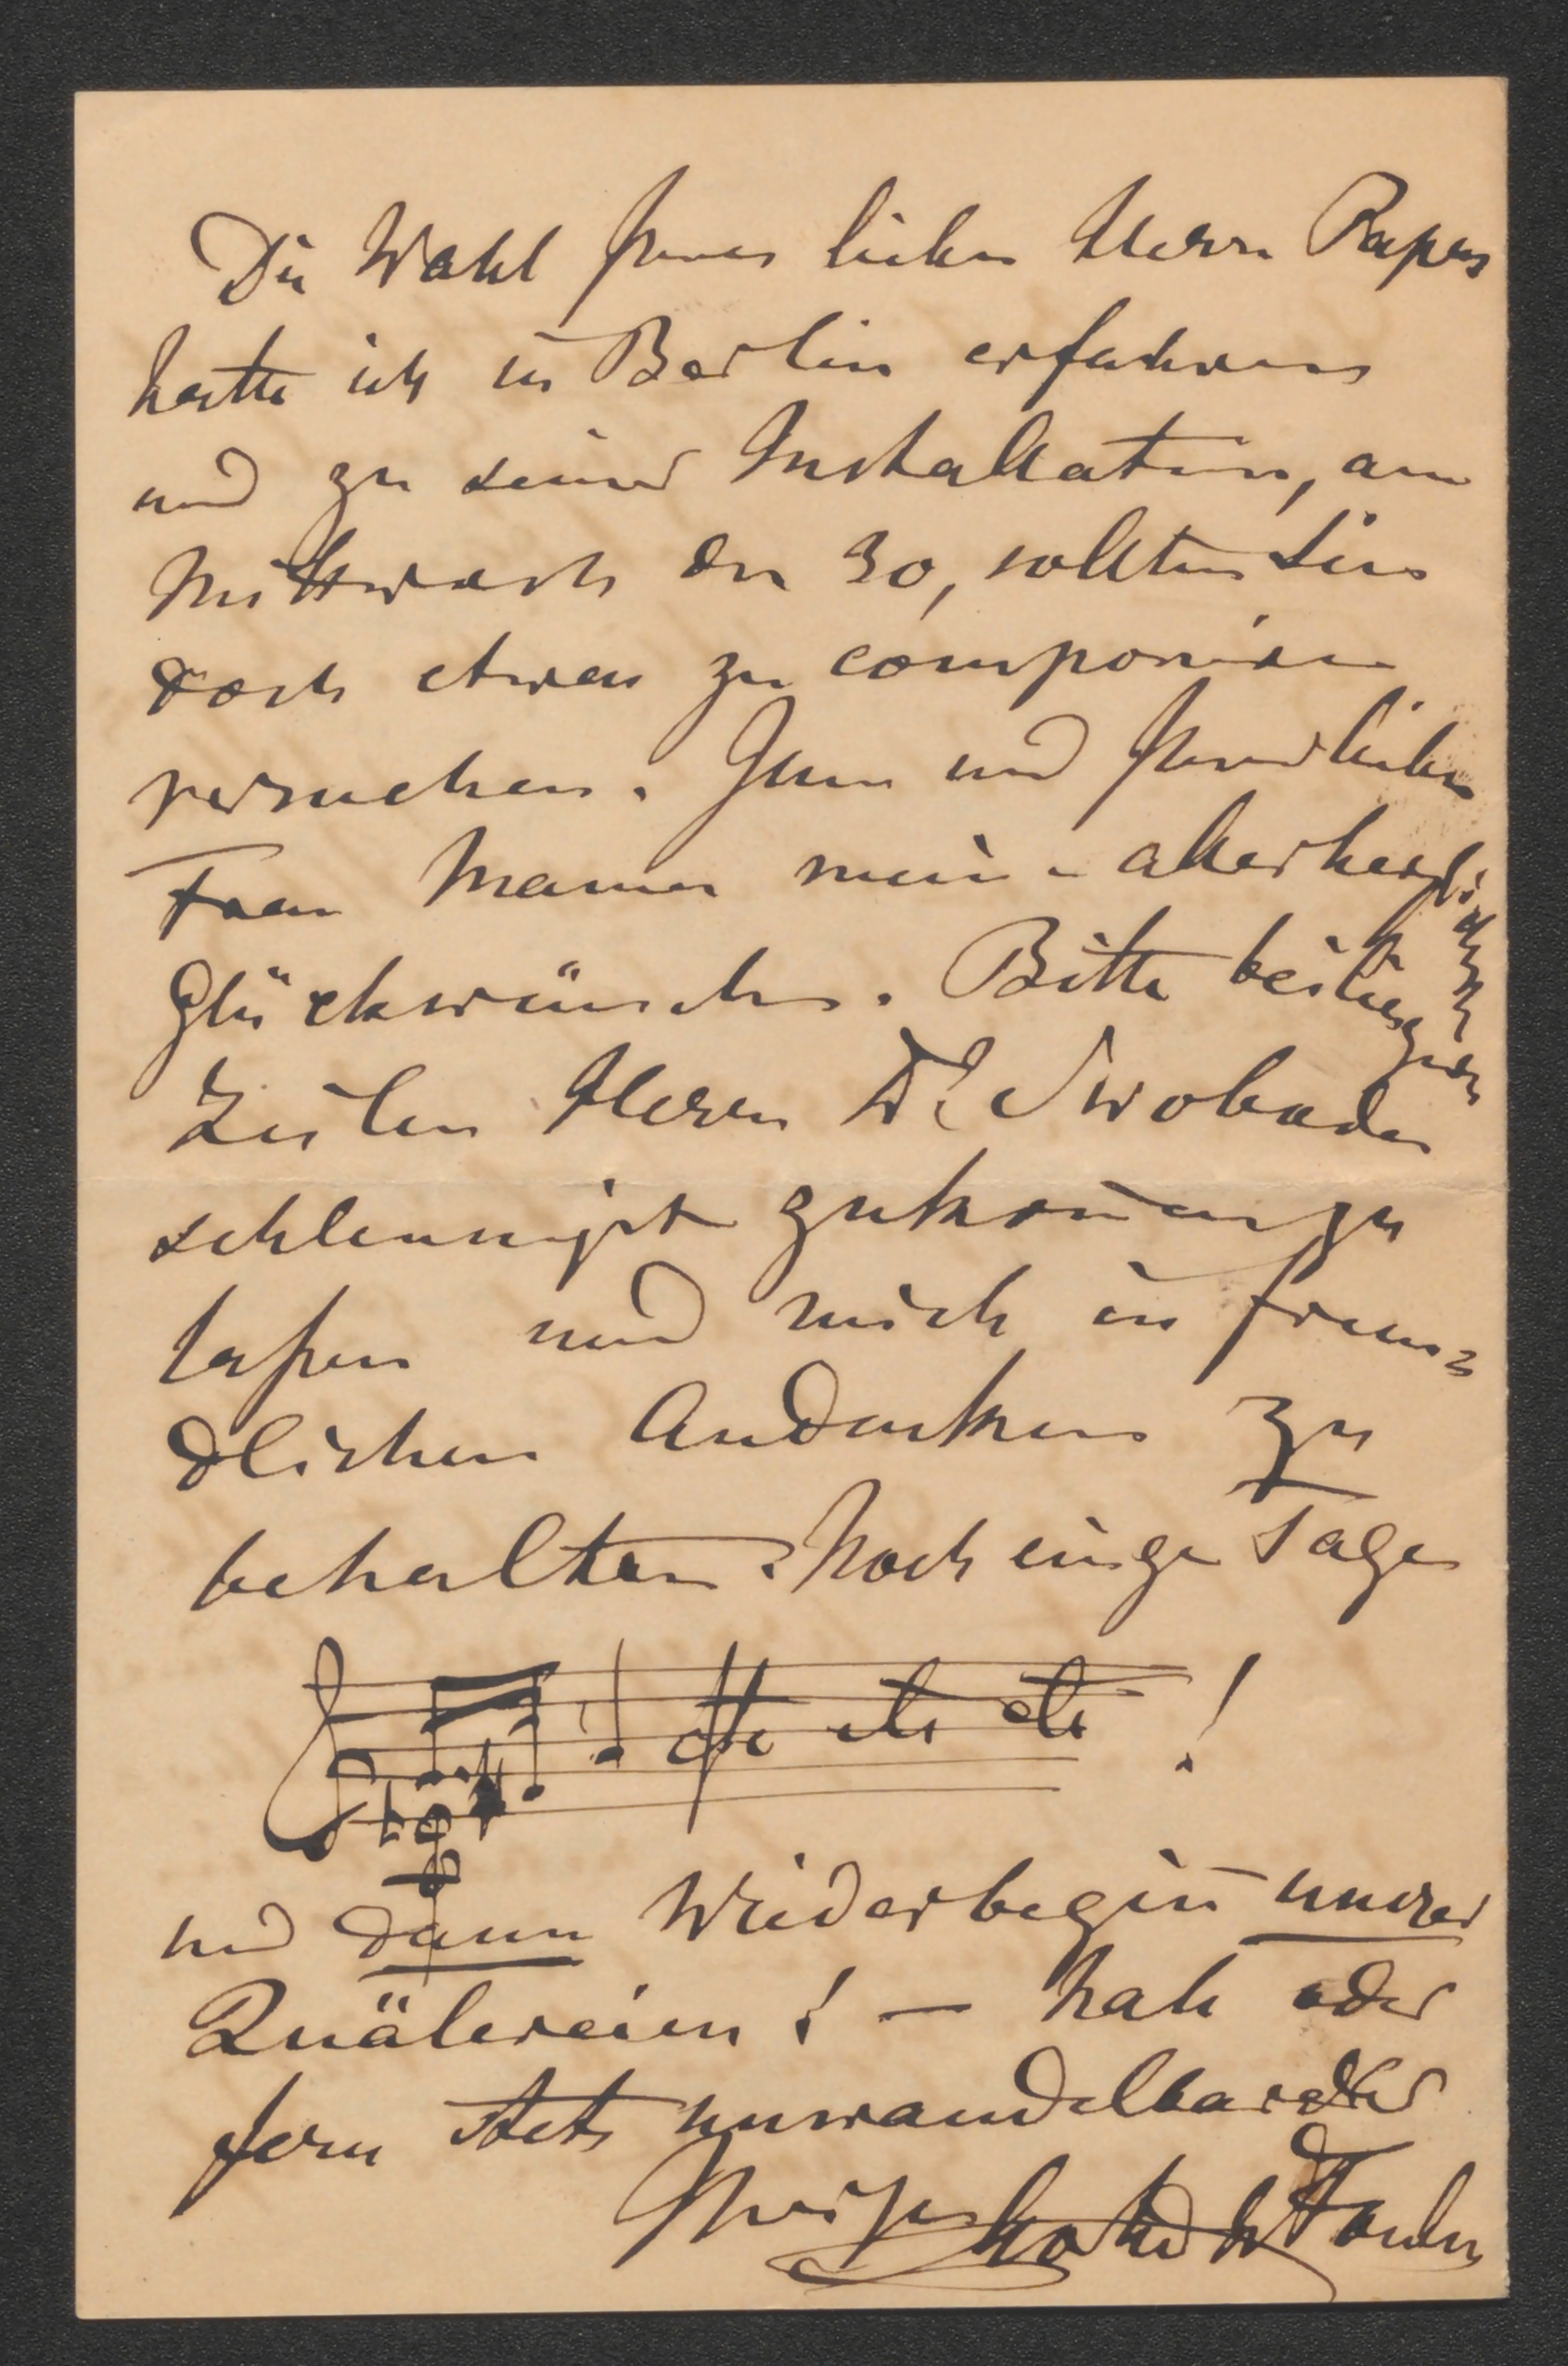 Die Wahl Ihres lieben Herrn Papas
hatte ich in Berlin erfahren
und zu seiner Installation, am
Mittwoch den 30, sollten Sie
doch etwas zu componiren
versuchen. Ihnen und Ihrer lieben
Frau Mama meine allerherzlichsten
Glückwünsche. Bitte beiliegende
Zeilen Herrn Dr Swoboda
schleunigst zukom̄en zu
laßen und mich in freun=
dlichen Andenken zu
behalten. Noch einige Tage
etc etc etc !
und dann Wiederbegin̄ unsrer
Quälereien! — Nah oder
fern stets unwandelbar der
Ihrige